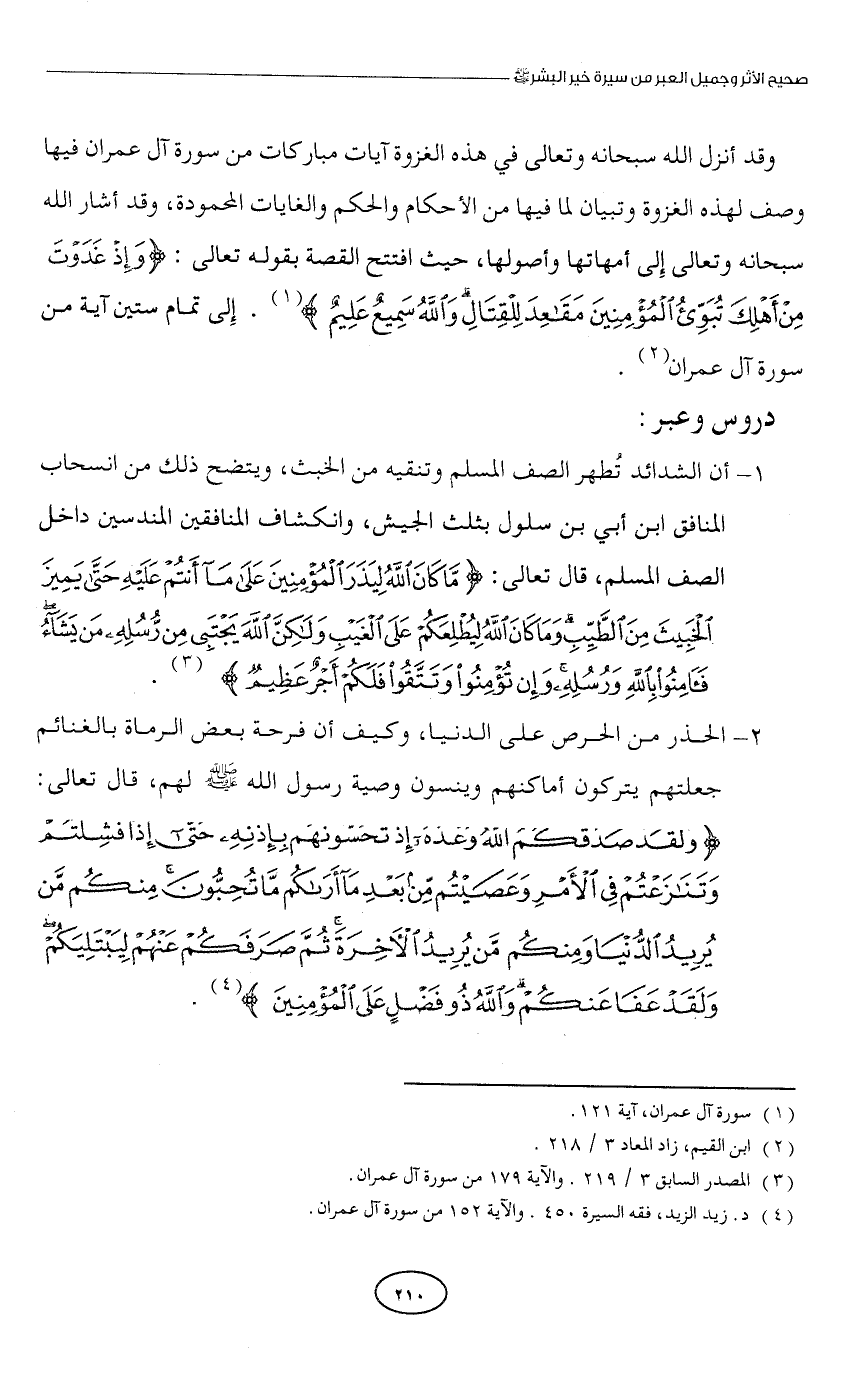 صحيح الأثر وجميل العبر من سيرة خير البشر ﷺ
وقد أنزل الله سبحانه وتعالى في هذه الغزوة آيات مباركات من سورة آل عمران فيها
وصف لهذه الغزوة وتبيان لما فيها من الأحكام والحكم والغايات المحمودة، وقد أشار الله
سبحانه وتعالى إلى أمهاتها وأصولها، حيث افتتح القصة بقوله تعالى : ﴿ وَإِذْ غَدَوْتَ
مِنْ أَهْلِكَ تُبَوِّئُ ٱلْمُؤْمِنِينَ مَقَٰعِدَ لِلْقِتَالِ ۗ وَٱللَّهُ سَمِيعٌ عَلِيمٌ ﴾ (١) . إلى تمام ستين آية من
سورة آل عمران(٢) .
دروس وعبر :
١- أن الشدائد تُطهر الصف المسلم وتنقيه من الخبث، ويتضح ذلك من انسحاب
المنافق ابن أبي بن سلول بثلث الجيش، وانكشاف المنافقين المندسين داخل
الصف المسلم، قال تعالى: ﴿ مَّا كَانَ ٱللَّهُ لِيَذَرَ ٱلْمُؤْمِنِينَ عَلَىٰ مَآ أَنتُمْ عَلَيْهِ حَتَّىٰ يَمِيزَ
ٱلْخَبِيثَ مِنَ ٱلطَّيِّبِ ۗ وَمَا كَانَ ٱللَّهُ لِيُطْلِعَكُمْ عَلَى ٱلْغَيْبِ وَلَٰكِنَّ ٱللَّهَ يَجْتَبِى مِن رُّسُلِهِۦ مَن يَشَآءُ ۖ
فَـَٔامِنُوا۟ بِٱللَّهِ وَرُسُلِهِۦ ۚ وَإِن تُؤْمِنُوا۟ وَتَتَّقُوا۟ فَلَكُمْ أَجْرٌ عَظِيمٌ ﴾ (٣) .
٢- الحذر من الحرص على الدنيا، وكيف أن فرحة بعض الرماة بالغنائم
جعلتهم يتركون أماكنهم وينسون وصية رسول الله ﷺ لهم، قال تعالى:
﴿ وَلَقَدْ صَدَقَكُمُ ٱللَّهُ وَعْدَهُۥٓ إِذْ تَحُسُّونَهُم بِإِذْنِهِۦ ۖ حَتَّىٰٓ إِذَا فَشِلْتُمْ
وَتَنَٰزَعْتُمْ فِى ٱلْأَمْرِ وَعَصَيْتُم مِّنۢ بَعْدِ مَآ أَرَىٰكُم مَّا تُحِبُّونَ ۚ مِنكُم مَّن
يُرِيدُ ٱلدُّنْيَا وَمِنكُم مَّن يُرِيدُ ٱلْأَخِرَةَ ۚ ثُمَّ صَرَفَكُمْ عَنْهُمْ لِيَبْتَلِيَكُمْ ۖ
وَلَقَدْ عَفَا عَنكُمْ ۗ وَٱللَّهُ ذُو فَضْلٍ عَلَى ٱلْمُؤْمِنِينَ ﴾ (٤) .
(١) سورة آل عمران، آية ١٢١ .
(٢) ابن القيم، زاد المعاد ٣ / ٢١٨ .
(٣) المصدر السابق ٣ / ٢١٩ . والآية ١٧٩ من سورة آل عمران.
(٤) د. زيد الزيد، فقه السيرة ٤٥٠ . والآية ١٥٢ من سورة آل عمران.
٢١٠